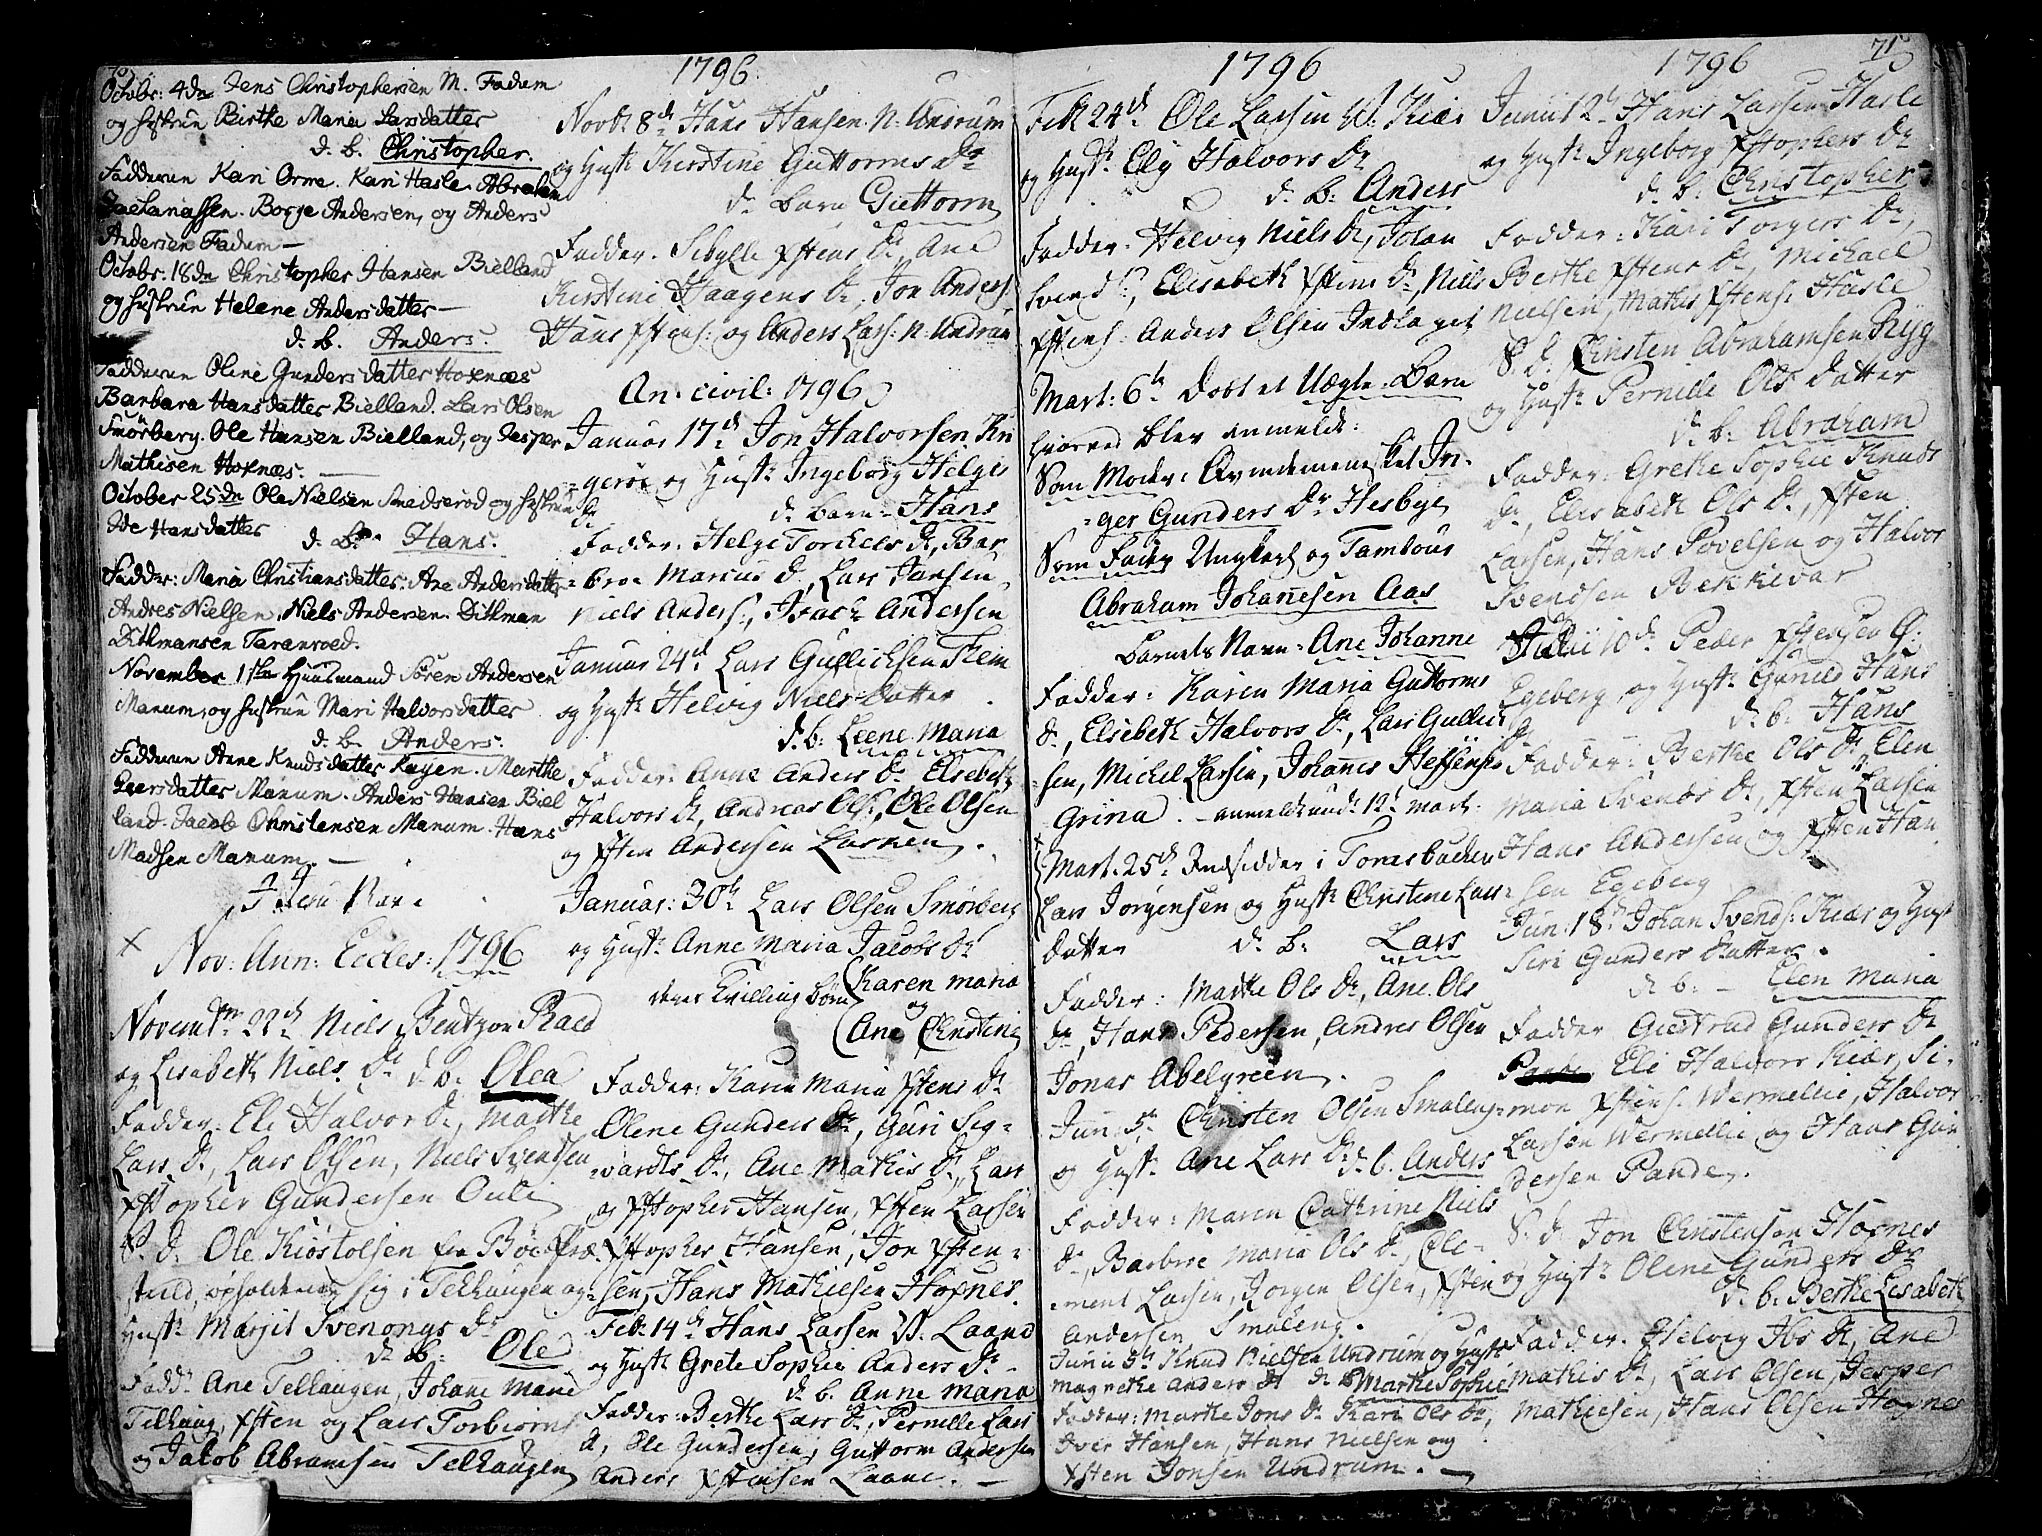 70
Octobr: 4de Jens Christophersen M. Fadum
og Hustrue Birthe Maria Larsdatter
d. B. Christopher.
Fadderne Kari Orme. Kari Hasle. Abraham
Zachariassen. Borge Andersen, og Anders
Andersen Fadum —
Octobr: 18de Christopher Hansen Bielland
og Hustrue Helene Andersdatter —
d. B. Anders.
Fadderne Oline Gundersdatter Hoxnæs
Barbara Hansdatter Bielland. Lars Olsen
Smörberg. Ole Hansen Bielland, og Jesper
Mathisen Hoxnæs. —
October 25de Ole Nielsen Smidsrod og Hustrue
Ide Hansdatter d. B. Hans.
Fadder: Maria Christiansdatter. Ane Andersdatter
Andres Nielsen. Niels Andersen. Ditlman
Ditlmansen Taranroed.
November 1ste Huusmand Sören Andersen
Manum, og Hustrue Mari Halvorsdatter
d. B. Anders.
Fadderne Anne Knudsdatter Marthe
Manum. Anders Hansen Biel
land. Jacob Christensen Manum. Hans
Madsen Manum. —
X Nov: Ann: Eccles: 1796
Novembr 22d Niels Bentzon Raed
og Lisabeth Niels Dr d. b. Olea
Fadder: Eli Halvor Dr, Marthe
Lars Dr, Lars Olsen, Niels Svendsen
Xstopher Gundersen Ouli
S. D. Ole Kiöstolsen fra Böe Præ
stuld, opholdende sig i Telhaugen og
Hustr. Margit Svenongs Dr
d. B. Ole
Fadd: Ane Telhaugen, Johane Marie
Telhaug, Xsten og Lars Torbiörns
og Jakob Abramsen Telhaugen
1796
Novbr 8de Hans Hansen N. Undrum
og Hustr. Kirstine Guttorms Dr
d. Barn Guttorm
Fadder. Sibylle Xstens Dr, Ane
Kirstine Haagens Dr, Jon Anders.
Hans Xstens: og Anders Lars: N. Undrum
An: civil: 1796
Januar 17de Jon Halvorsen Rin
gerøe og Hustr. Ingeborg Helges
Dr d. Barn Hans
Fadder: Helge Torchels Dr, Bar
bro Marcus Dr, Lars Jansen
Niels Anders., Isach Andersen
Januar 24de Lars Gullichsen Tlem
og Hustr. Helvig Niels datter
d. b. Leene Maria
Fadder: Anne Anders Dr Elsebeth
Halvors Dr, Andreas Ols:, Ole Olsen
og Xsten Andersen
Januar: 30te Lars Olsen Smörberg
og Hustr. Anne Maria Jacobs Dr
deres Tvilling börn (Karen Maria
og
(Ane Christine
Fadder: Karen Maria Xstens Dr
Olene Gunders Dr, Guri Sig-
wardts Dr, Ane Mathis Dr, Lars
og Xstopher Hansen, Xsten Larsen
Xstopher Hansen, Jon Xsten-
sen, Hans Mathiesen Hoxnes
Feb: 14de Hans Larsen W. Laand
og Hustr. Grete Sophie Anders Dr
d. b. Anne Maria
Fadder: Berthe Lars Dr, Pernille Lars
Dr, Ole Gundersen, Guttorm Andersen
Anders Xstensen Laane. —
1796
Feb: 24de Ole Larsen W. Kiær
og Hustr. Ely Halvors Dr
d. B: Anders
Fadder: Helvig Niels Dr, Johan
Svends., Elisabeth Xstens Dr, Niels
Xstens: Anders Olsen Indlaget
Mart: 6te Döbt et Uægte Barn
hvorved blev anmeldt:
Som Moder: Qvindemennesket In-
ger Gunders Dr Hesbye
Som Fader Ungkarl og Tambour
Abraham Johannesen Aas
Barnets Navn: Ane Johanne
Fadder: Karen Maria Guttorms
Dr, Elsebeth Halvors Dr, Lars Gullich
sen, Michel Larsen, Johannes Steffens
Grina. — anmeldt 12t Mart.
Mart. 25de Indsidder i Tonesbachen
Lars Jörgensen og Hustr. Christine Lars
datter d. b: Lars
Fadder: Marthe Ols Dr, Ane Ols
Dr, Hans Pedersen, Andres Olsen
Jonas Abelgreen.
Jun: 5te Christen Olsen Smaleng
og Hustr. Ane Lars Dr d. b. Anders
Fadder: Maren Cathrine Niels
Dr, Barbroe Maria Ols Dr, Cle-
ment Larsen, Jörgen Olsen, Xsten
Andersen Smaleng.
Junii 5te Knud Nielsen Undrum og Hustr.
Magrethe Anders Dr d. b. Marthe Sophie
Fadder: Marthe Jons Dr Kari Ols Dr,
Iver Hansen, Hans Nielsen og
Xsten Jonsen Undrum. —
1796
71
Junii 12te Hans Larsen Hasle
og Hustr. Ingeborg Xstophers Dr
d. b: Christopher
Fadder: Kari Torgers Dr,
Berthe Xstens Dr, Michael
Nielsen, Mathis Xstens: Hasle
S. D. Christen Abrahamsen Ryg
og Hustr. Pernille Ols datter
d. b: Abraham
Fadder: Grethe Sophie Knuds
Dr, Elisabeth Ols Dr, Xsten
Larsen, Hans Povelsen og Halvor
Svendsen Bekkevar
Julii 10de Peder Xstensen G:
Egeberg, og Hustr. Gunild Hans
Dr d. b. Hans
Fadder: Berthe Ols Dr, Elen
Maria Svends Dr, Xsten Larsen
Hans Andersen og Xsten Han
sen Egeberg
Jun: 18de Johan Svends: Kiær og Hust
Siri Gunders Datter.
d. b: — Elen Maria
Fadder Giertrud Gunders Dr
Eli Halvors Kiær, Si-
mon Xstens: Wermellie, Halvor
Larsen Wermellie og Hans Gun
dersen Pande.
S. D. Jon Christensen Hoxnes
og Hustr. Olene Gunders Dr
d. b. Berthe Lisabeth
Fadder. Helvig Ibs Dr, Ane
Mathis Dr, Lars Olsen, Jesper
Mathiesen, Hans Olsen Hoxnes